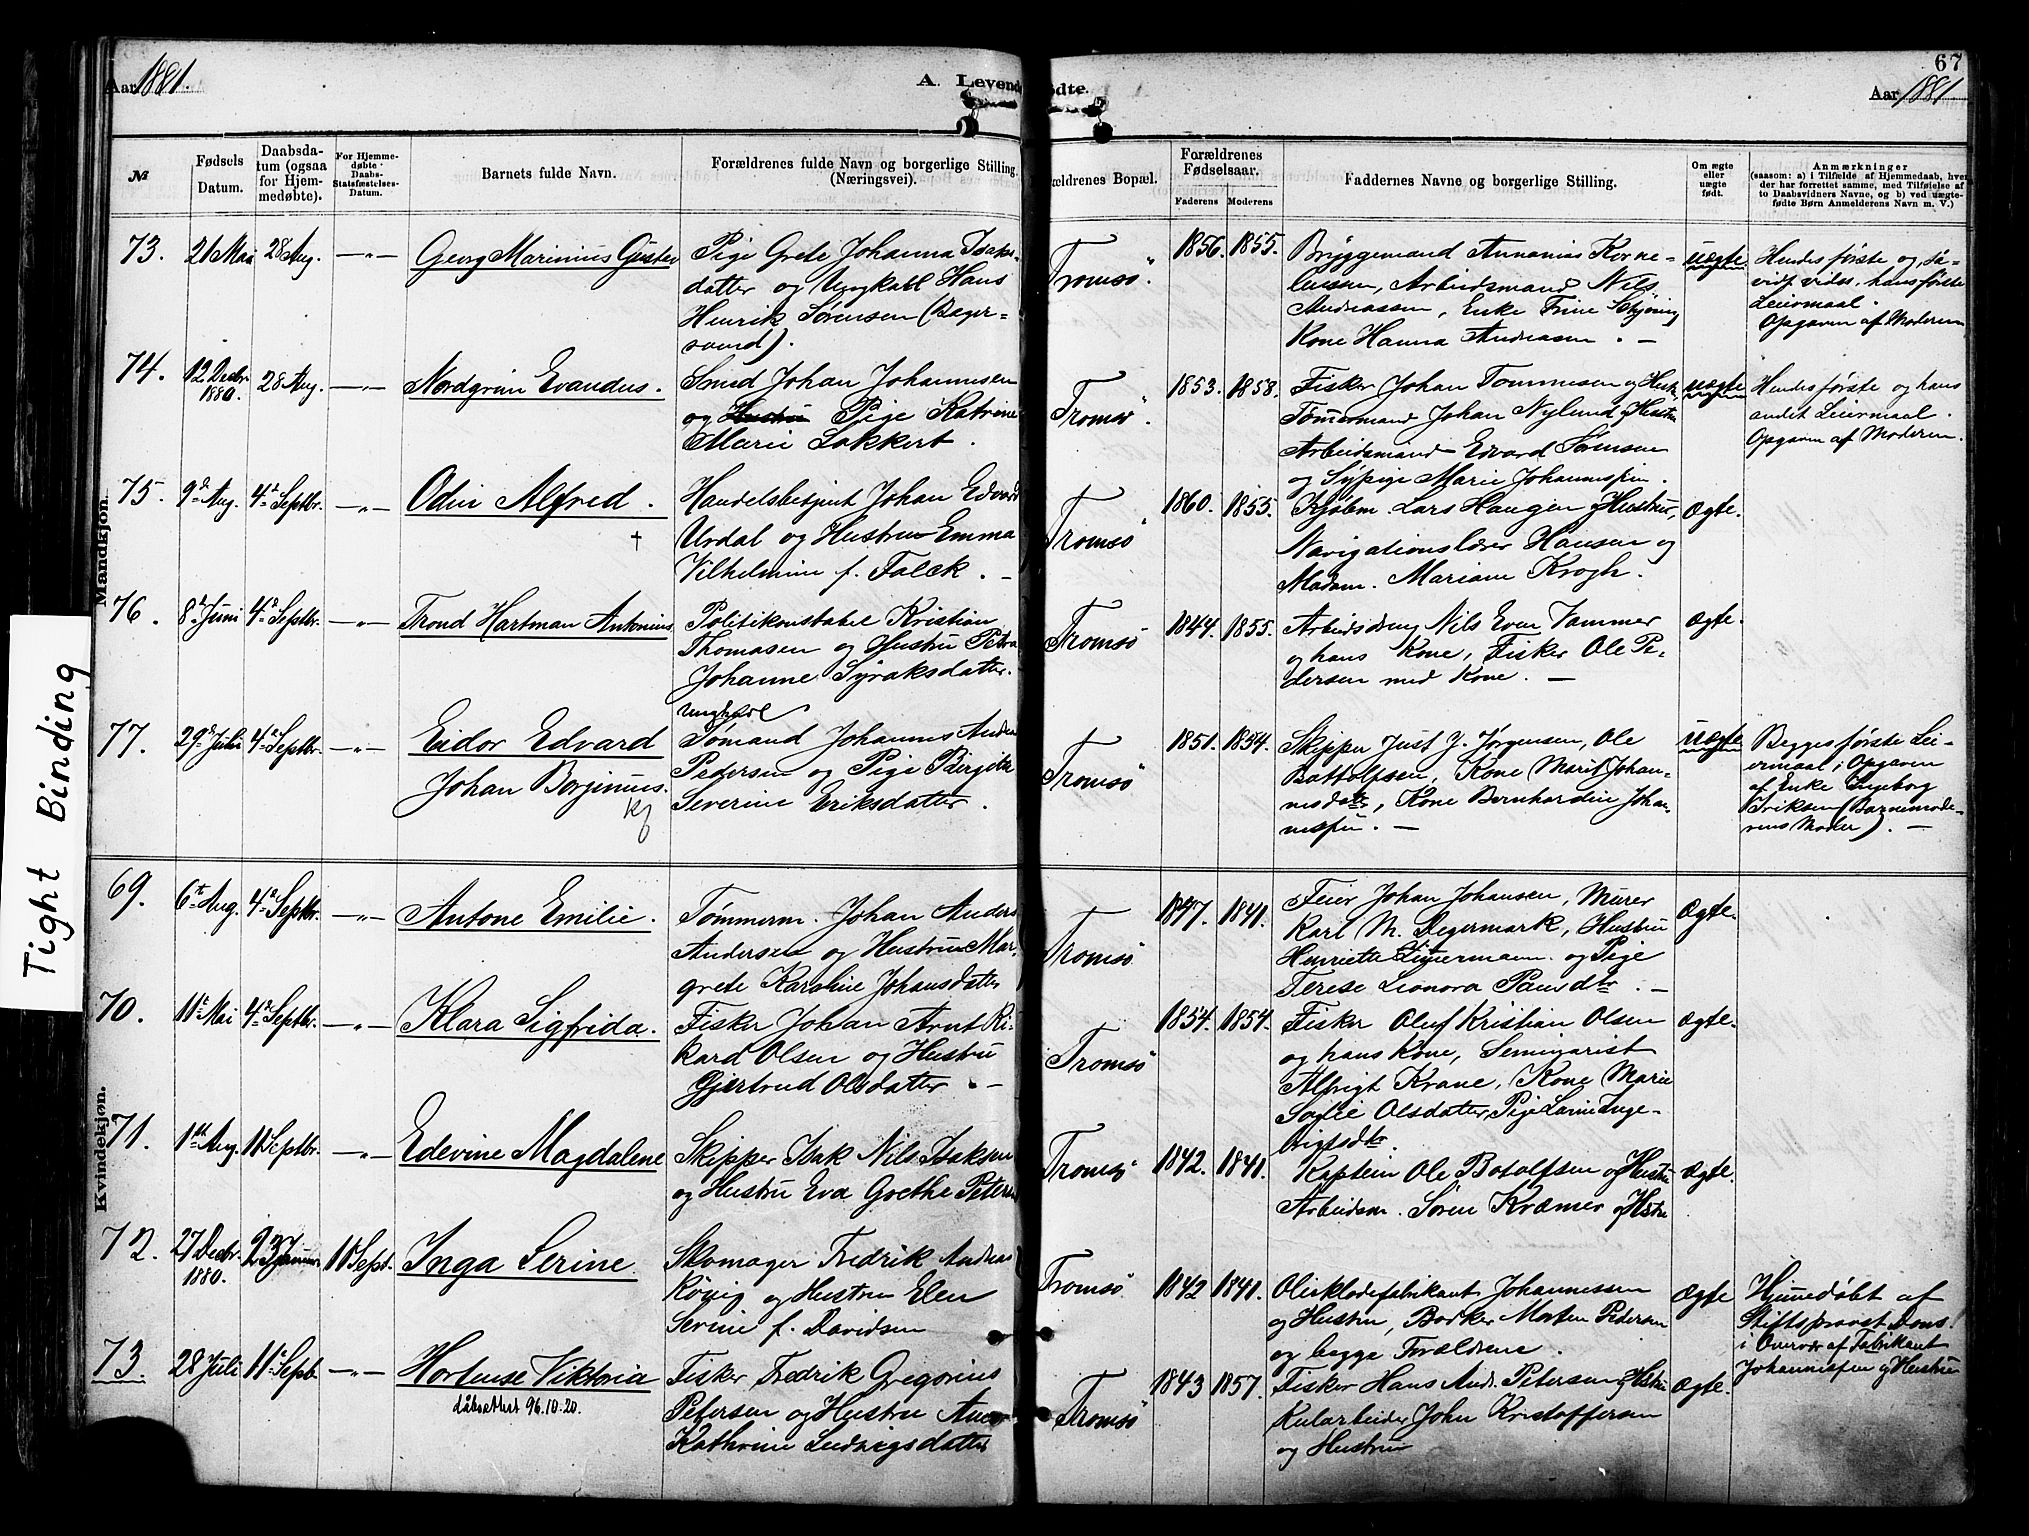 Aar 1881.
A. Levendefødte.
67
Aar 1881.
№
Fødsels Datum.
Daabsdatum (ogsaa for Hjemmedøbte).
For Hjemmedøbte Daabs-Statsfæstelses-Datum.
Barnets fulde Navn.
Forældrenes fulde Navn og borgerlige Stilling (Næringsvei).
ældrenes Bopæl.
Forældrenes Fødselsaar.
Faderens
Moderens
Faddernes Navne og borgerlige Stilling.
Om ægte eller uægte født.
Anmærkninger
(saasom: a) i Tilfælde af Hjemmedaab, hvem der har forrettet samme, med Tilføielse af to Daabsvidners Navne, og b) ved uægtefødte Børn Anmelderens Navn m. V.)
Tight Binding
Mandkjøn.
73. 21 Mai 28 Aug. —„— Georg Marinius Gustav
Pige Grete Johanna Isaks-
datter og Ungkarl Hans
Henrik Sørensen (Bager-
svend).
Tromsø 1856. 1855.
Bryggemand Annanias Korne-
liussen, Arbeidsmand Nils
Andreassen, Enke Trine
Kone Hanna Andreasen. —
uægte.
Hendes første og, saa-
vidt vides, hans første
Leiermaal.
Opgaven af Moderen
74. 12 Decbr. 1880. 28 Aug. —„— Nordgrim Evandus.
Smed Johan Johannesen
og Hustru Pige Katrine
Marie Lokkert.
Tromsø 1853. 1858.
Fisker Johan Tommesen og Hustru
Tømmermand Johan Nylund og Hustru
Arbeidsmand Edvard Sørensen
og Sypige Marie Johannessen.
uægte
Hendes første og hans
andet Leiermaal.
Opgaven af Moderen.
75. 9de Aug. 4de Septbr. —„— Odin Alfred.
†
Handelsbetjent Johan Edvard
Urdal og Hustru Emma
Vilhelmine f. Falck. —
Tromsø 1860. 1855.
Kjøbm. Lars Haugen og Hustru,
Navigationslærer Hansen og
Madam. Mariane Krogh.
Ægte.
76. 8de Juni 4de Septbr. —„— Trond Hartman Antonius
Politikonstabel Kristian
Thomasen og Hustru Petra
Johanne Syraksdatter.
Tromsø 1844. 1855.
Arbeidsdreng Nils Even Vammer
og hans Kone, Fisker Ole Pe-
dersen med Kone. —
Ægte.
77. 29de Juli 4de Septbr. —„— Eidor Edvard
Johan Borjinus.
Ungkarl
Sømand Johannes Anders
Pedersen og Pige Birgitte
Severine Eriksdatter.
Tromsø 1851. 1854.
Skipper Just J. Jørgensen, Ole
Batfolfsen, Kone Marit Johan-
nesdatter, Kone Bernhardine Johan-
nesen. —
uægte
Begges første Lei-
ermaal; Opgaven
af Enke Ingeborg
Eriksen (Barnemode-
rens Moder). —
Kvindekjøn.
69. 6te Aug. 4de Septbr. —„— Antone Emilie.
Tømmerm. Johan Anders
Andersen og Hustru Mar-
grete Karoline Johansdatter
Tromsø 1847. 1841.
Feier Johan Johansen, Murer
Karl M. Degermark, Hustru
Henriette Zimermann. og Pige
Terese Leonora Paulsdtr. —
Ægte.
70. 11te Mai 4de Septbr. —„— Klara Sigfrida.
Fisker Johan Arnt Ri-
kard Olsen og Hustru
Gjertrud Olsdatter. —
Tromsø 1854. 1854.
Fisker Oluf Kristian Olsen
og hans Kone, Seminarist
Albrigt Krane, Kone Marie
Sofie Olsdatter, Pige Lavine Inge-
brigtsdtr.
Ægte.
71. 1ste Aug. 11 Septbr. —„— Edevine Magdalene
Skipper Isak Nils Isaksen
og Hustru Eva Grethe Petersen
Tromsø 1842. 1841.
Kaptein Ole Botolfsen og Hustru
Arbeidsm. Søren Kræmer og Hstru
Ægte.
72. 27 Decbr. 1880. 23 Januar 11 Septbr. Inga Serine.
Skomager Fredrik Andreas
Rønig og Hustru Elen
Serine f. Davidsen
Tromsø 1842 1841.
Olieklædefabrikant Johannessen
og Hustru, Bødker Morten Pedersen
og begge Forældrene.
Ægte
Hjemmedøbt af
Stiftsprovst Dons
i Overvær af Fabrikant
Johannessen og Hustru
73. 28 Juli 11te Septb —„— Hortense Viktoria
dåbsattest 96.10.20.
Fisker Fredrik Gregorius
Petersen og Hustru Anna
Kathrine Ludvigsdatter
Tromsø 1843 1857.
Fisker Hans Andr. Petersen og Hstru
Kularbeider John Kristoffersen
og Hustru
Ægte.